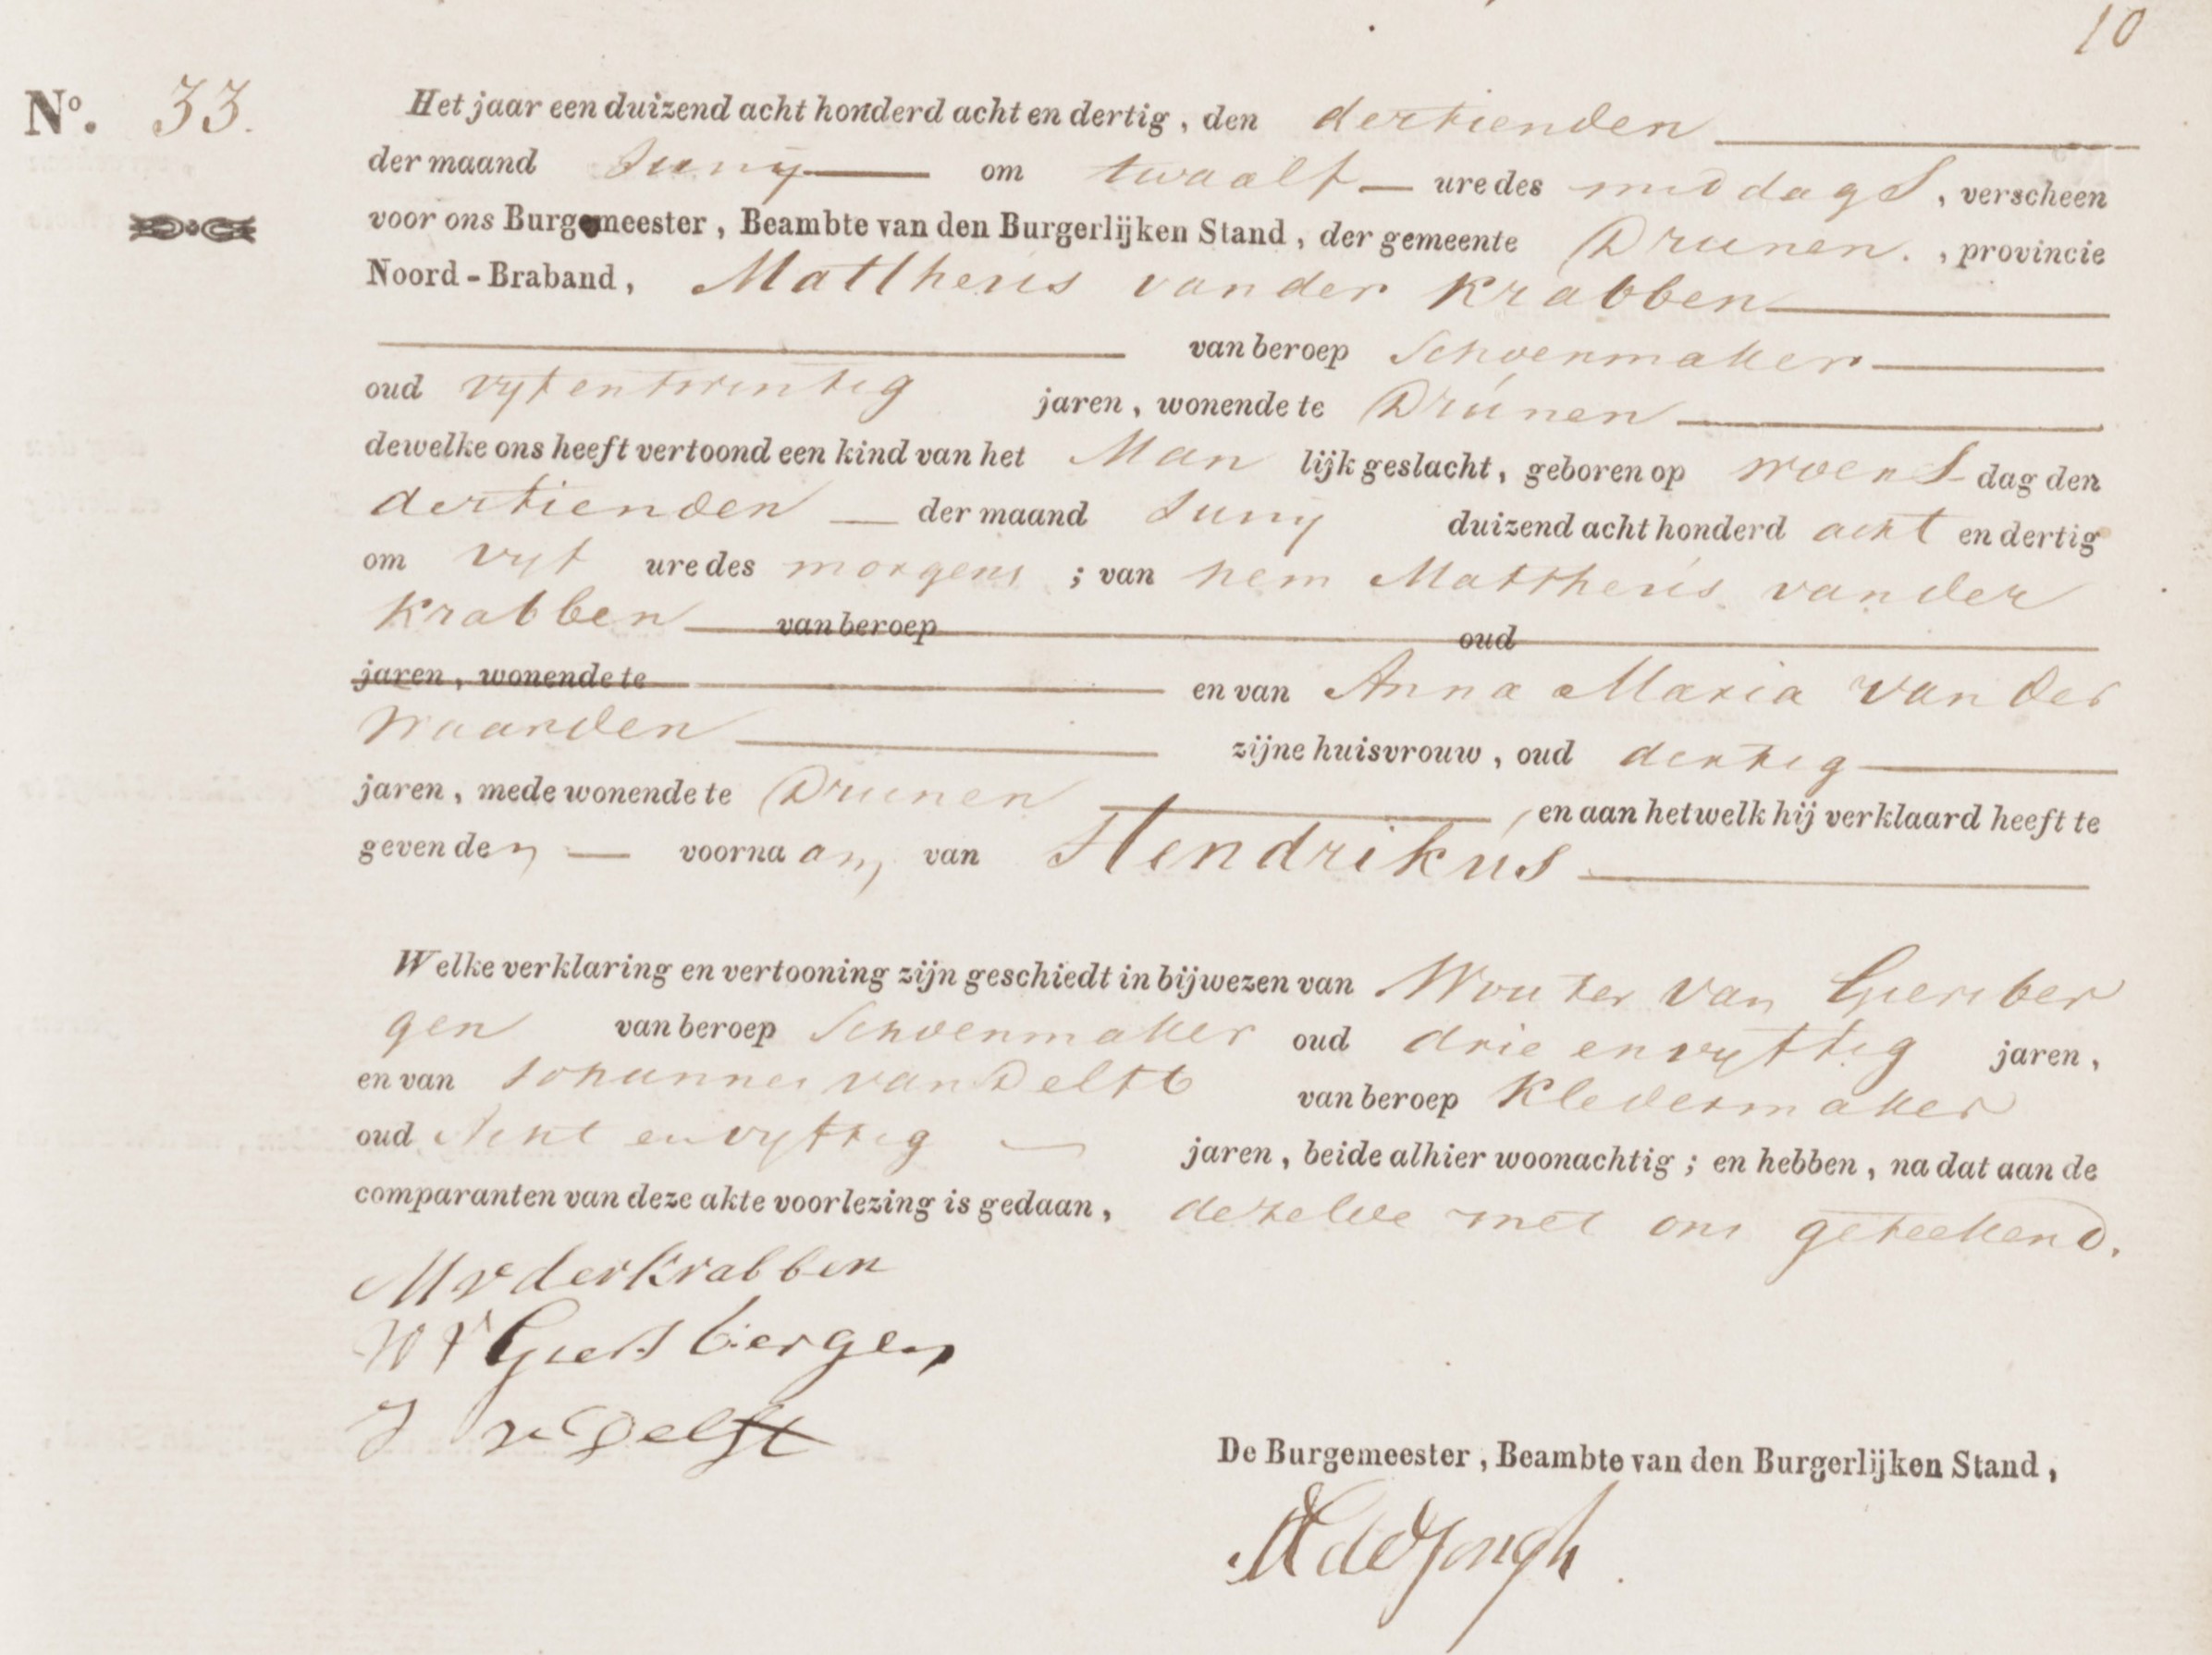 10
Nº. 33.
Het jaar een duizend acht honderd acht en dertig, den dertienden
der maand Juny om twaalf ure des middags, verscheen
voor ons Burgemeester, Beambte van den Burgerlijken Stand, der gemeente Drunen., provincie
Noord-Braband, Mattheus vander Krabben
van beroep Schoenmaker
oud vyfentwintig jaren, wonende te Drunen
dewelke ons heeft vertoond een kind van het Man lijk geslacht, geboren op woens dag den
dertienden der maand Juny duizend acht honderd acht en dertig
om vyf ure des morgens; van hem Mattheus vander
Krabben van beroep oud
jaren, wonende te en van Anna Maria van der
Waarden zijne huisvrouw, oud dertig
jaren, mede wonende te Drunen, en aan hetwelk hij verklaard heeft te
geven den voornaam van Hendrikus
Welke verklaring en vertooning zijn geschiedt in bijwezen van Wouter van Giersber
gen van beroep Schoenmaker oud drie en vyftig jaren,
en van Johannes van Delft van beroep Kledermaker
oud Acht en vyftig jaren, beide alhier woonachtig; en hebben, na dat aan de
comparanten van deze akte voorlezing is gedaan, dezelve met ons geteekend.
M v der Krabben
W V Giersbergen
J v Delft
De Burgemeester, Beambte van den Burgerlijken Stand,
de Jongh